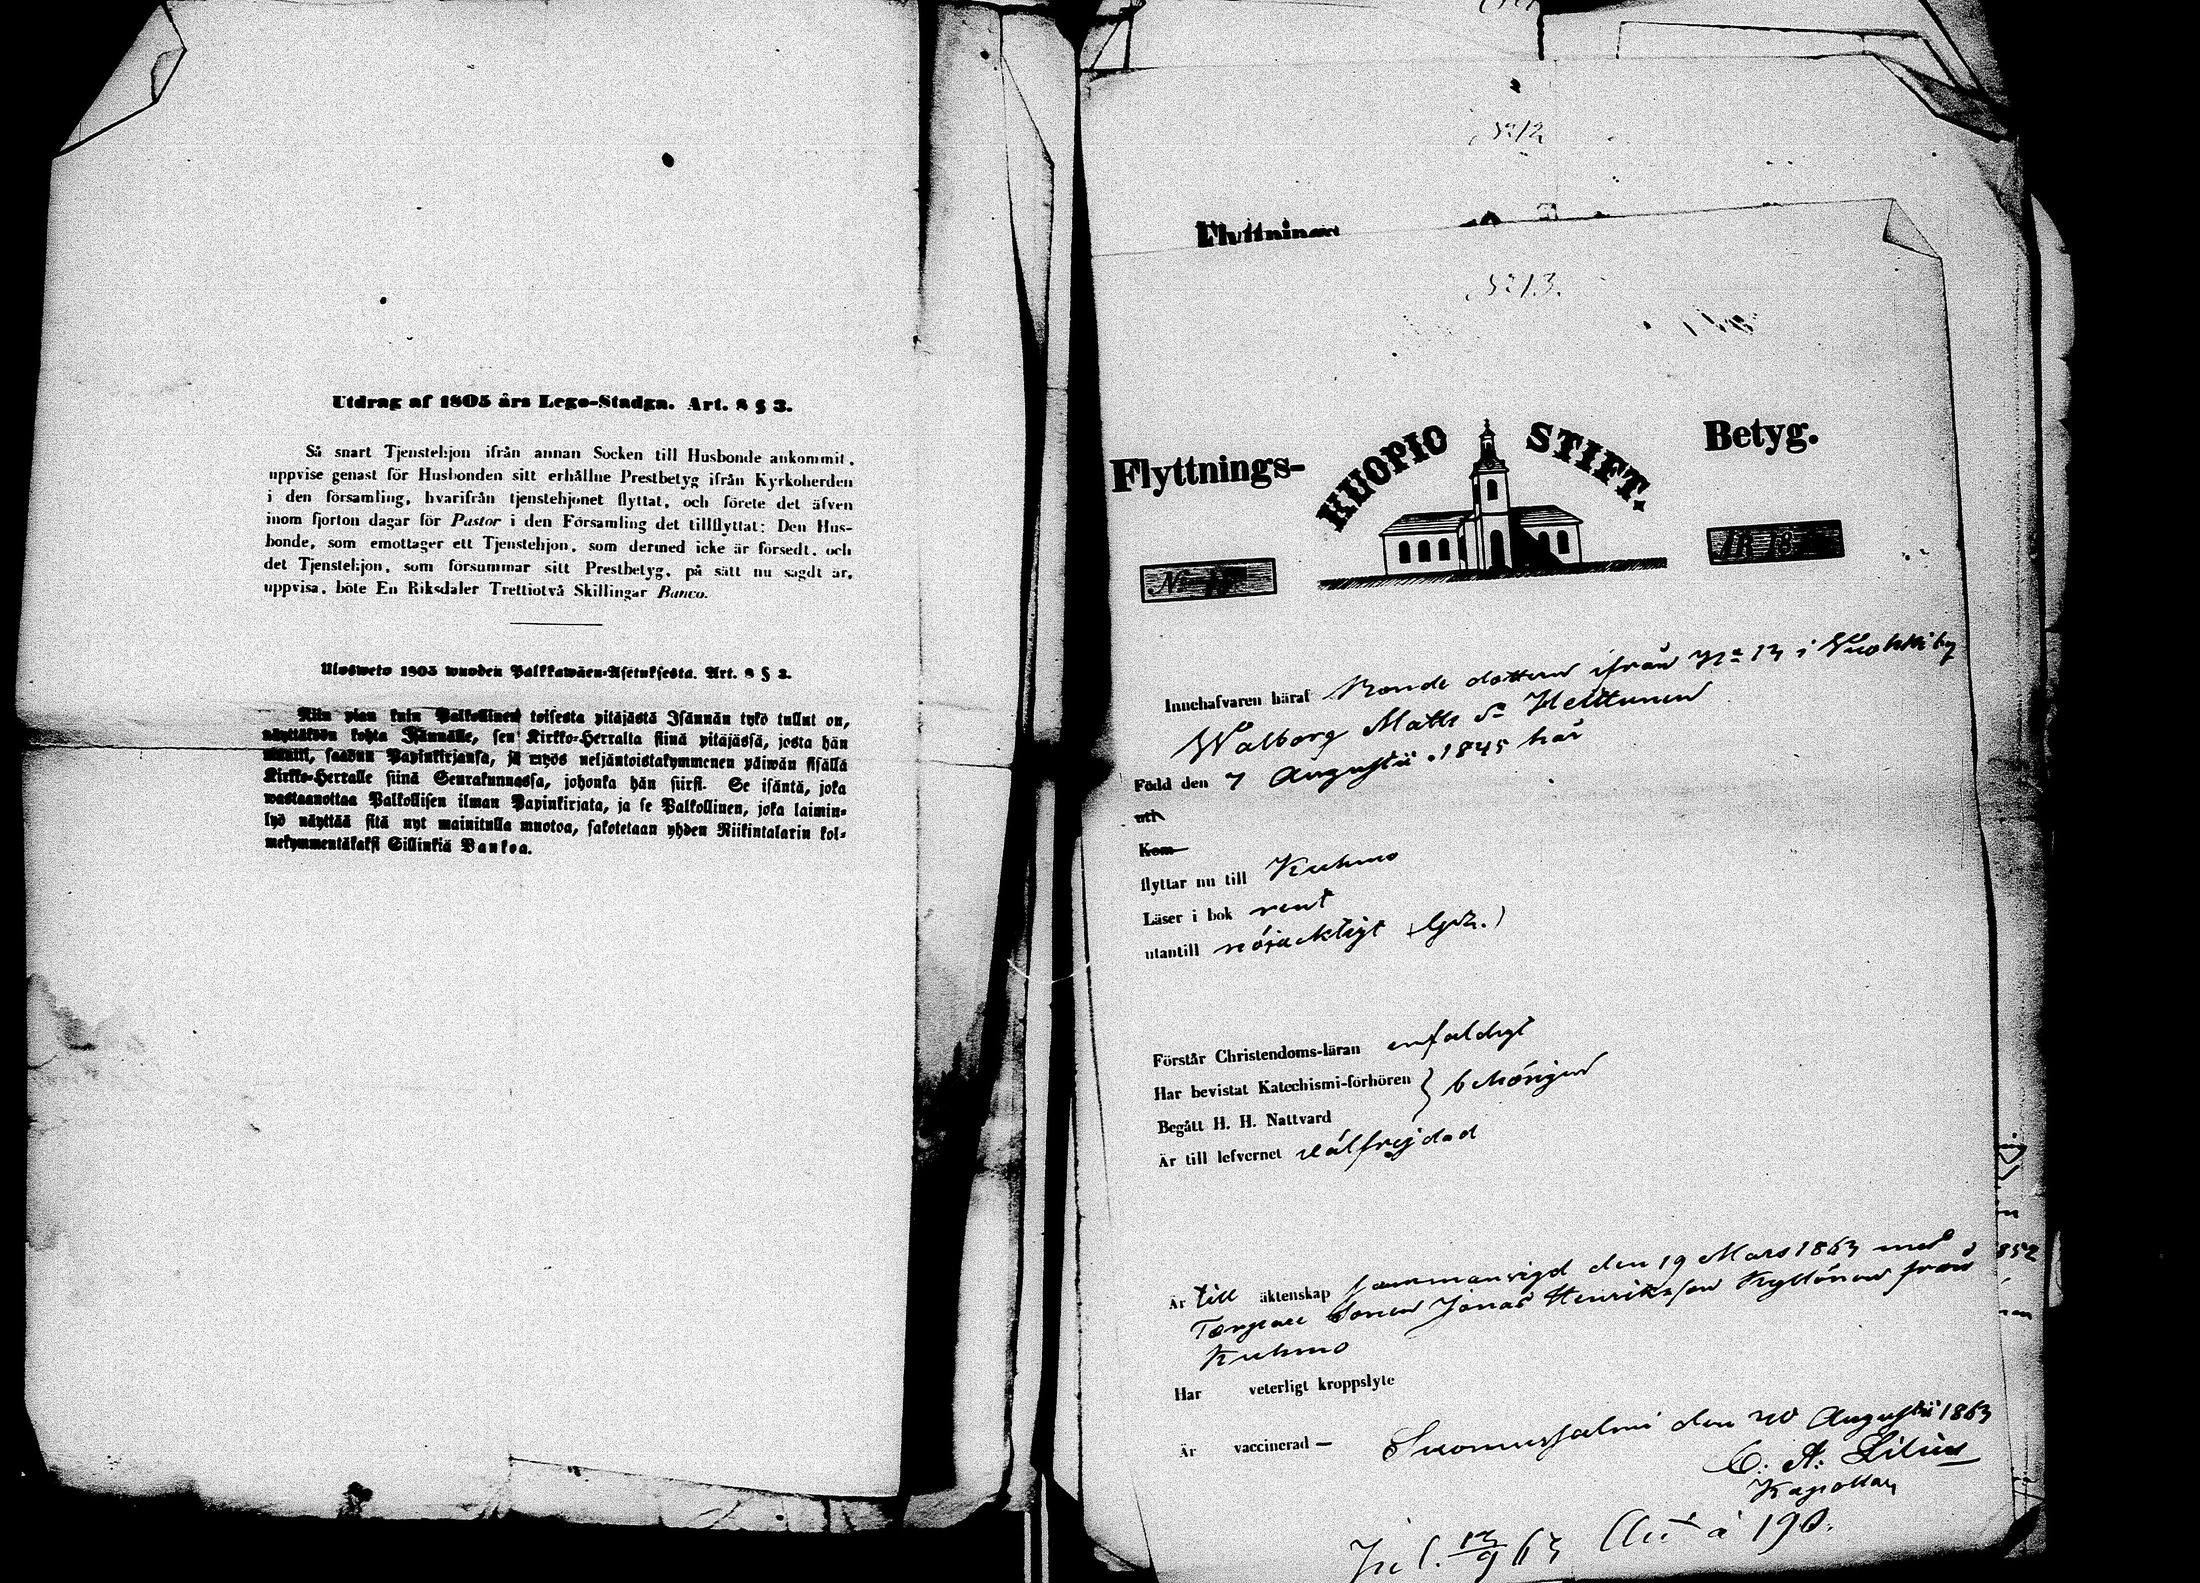 Utdrag af 1805 års Lego-Stadga. Art. 8 § 3.
Så snart Tjenstehjon ifrån annan Socken till Husbonde ankommit,
uppvise genast för Husbonden sitt erhållne Prestbetyg ifrån Kyrkoherden
i den församling, hvarifrån tjenstehjonet flyttat, och förete det äfven
inom fjorton dagar för Pastor i den Församling det tillflyttat: Den Hus-
bonde, som emottager ett Tjenstehjon, som dermed icke är försedt, och
det Tjenstehjon, som försummar sitt Prestbetyg, på sätt nu sagdt är,
uppvisa, böte En Riksdaler Trettiotvå Skillingar Banco.
Ulosweto 1805 wuoden Palkkawäen-Asetuksesta. Art. 8 § 3.
Niin pian kuin Palkollinen toisesta pitäjästä Isännän tykö tullut on,
näyttäköön kohta Isännälle, sen Kirkko-Herralta siinä pitäjässä, josta hän
muutti, saadun Papinkirjansa, ja myös neljäntoistakymmenen päiwän sisällä
Kirkko-Herralle siinä Seurakunnassa, johonka hän siirsi. Se isäntä, joka
wastaanottaa Palkollisen ilman Papinkirjata, ja se Palkollinen, joka laimin-
lyö näyttää sitä nyt mainitulla muotoa, sakotetaan yhden Riikintalarin kol-
mekymmentäkaksi Sillinkiä Bankoa.
No 12
Flyttnings
No 13.
Flyttnings- KUOPIO STIFT. Betyg.
Innehafvaren häraf Bonde dottren ifrån No 13 i Vuokki by
Walborg Matts dr Heittunen
Född den 7 Augustii 1845 har
uti
Kom
flyttar nu till Kuhmo
Läser i bok rent
utantill nöjacktigt
Förstår Christendoms-läran enfaldigt
Har bevistat Katechismi-förhören } behörigen
Begått H. H. Nattvard
Är till lefvernet välfrejdad
Är till äktenskap sammanvigd den 19 Mars 1863 med
Torpare Sonen Jonas Henriksson Kyllönen från
Kuhmo
Har veterligt kroppslyte
Är vaccinerad —
Suomussalmi den 20 Augustii 1863
C. A. Lilius
Kapellan